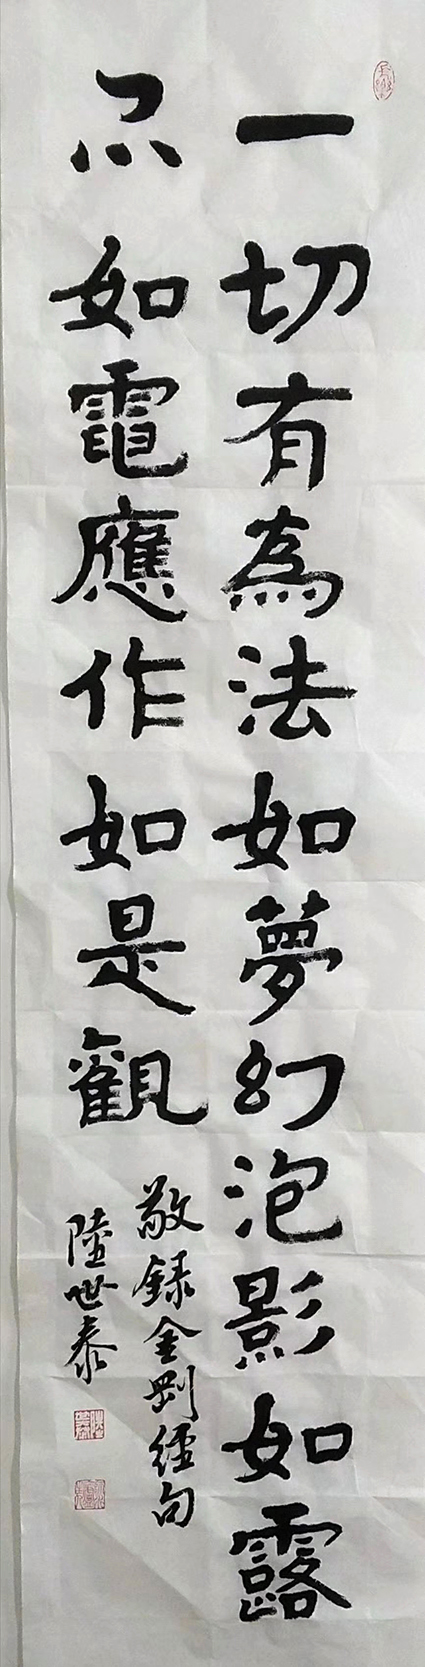 一切有為法如夢幻泡影如露
亦如電應作如是觀
敬録金剛經句
陸世泰